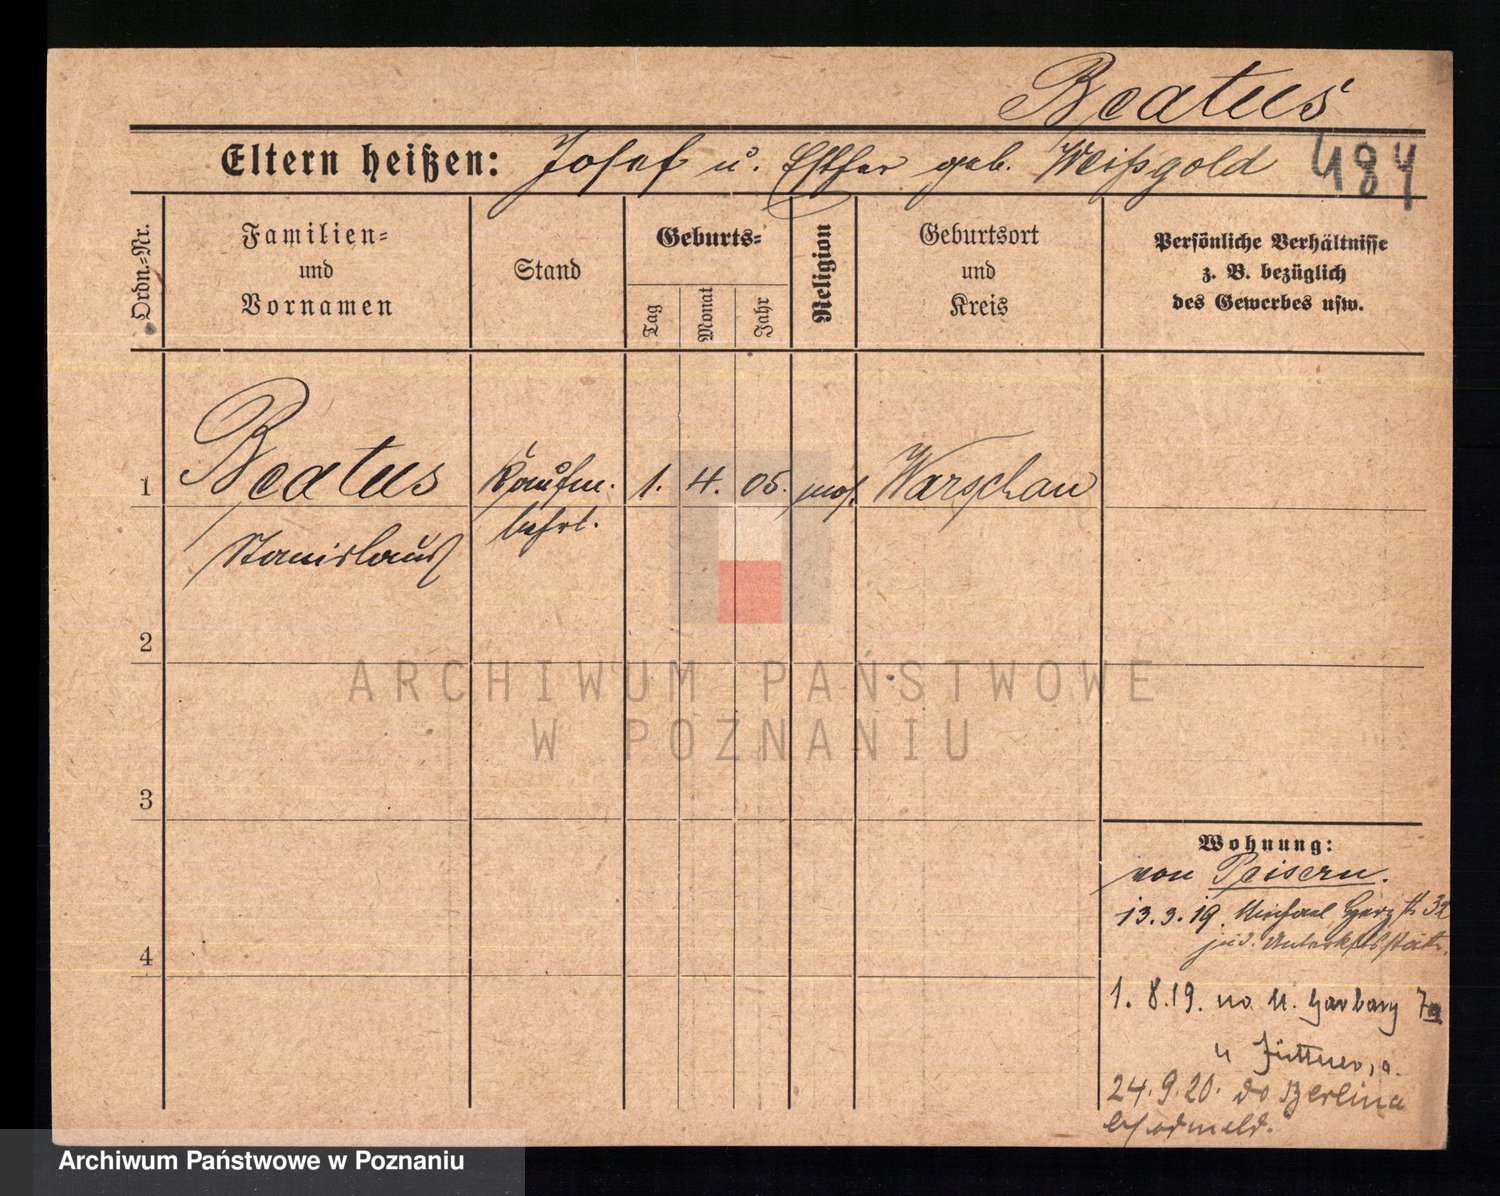 Beatus
Eltern heißen: Josef u. Esther geb. Weißgold 487
Ordn.-Nr.
Familien-
und
Vornamen
Stand
Geburts-
Tag
Monat
Jahr
Religion
Geburtsort
und
Kreis
Persönliche Verhältnisse
z. B. bezüglich
des Gewerbes usw.
1 Beatus Kaufm. 1. 4. 05. mos. Warschau
Stanislaus lehrl.
2
3
4
ARCHIWUM PAŃSTWOWE
W POZNANIU
Wohnung:
von Peisern.
13.3.19. Michael Herz
jüd.
1. 8.19. na M. Garbary 7a
u
24.9.20. do Berlina
Archiwum Państwowe w Poznaniu